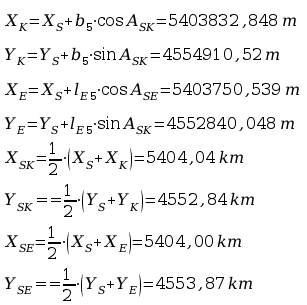 X_K=X_S+b_5·cos A_SK=5403832,848 m
Y_K=Y_S+b_5·sin A_SK=4554910,52 m
X_E=X_S+l_E5·cos A_SE=5403750,539 m
Y_E=Y_S+l_E5·sin A_SK=4552840,048 m
X_SK=1/2·(X_S+X_K)=5404,04 km
Y_SK==1/2·(Y_S+Y_K)=4552,84 km
X_SE=1/2·(X_S+X_E)=5404,00 km
Y_SE==1/2·(Y_S+Y_E)=4553,87 km